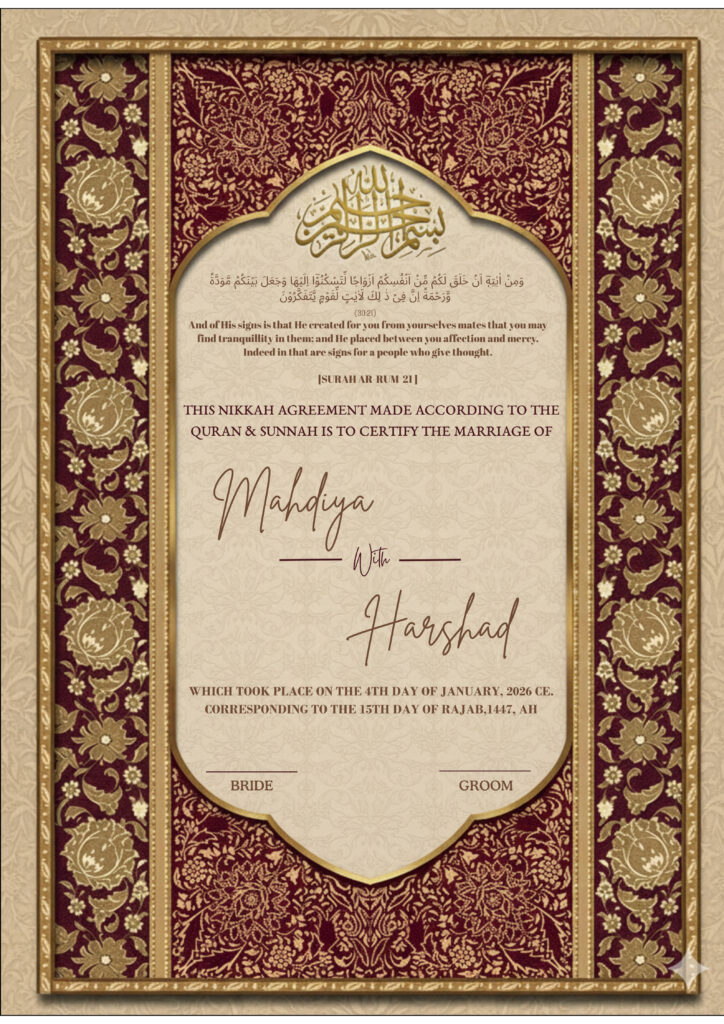 بسم الله الرحمن الرحيم
وَمِنْ اٰيٰتِهٖۤ اَنْ خَلَقَ لَكُمْ مِّنْ اَنْفُسِكُمْ اَزْوَاجًا لِّتَسْكُنُوْۤا اِلَيْهَا وَجَعَلَ بَيْنَكُمْ مَّوَدَّةً
وَّرَحْمَةً اِنَّ فِيْ ذٰ لِكَ لَاٰيٰتٍ لِّقَوْمٍ يَّتَفَكَّرُوْنَ
(30:21)
And of His signs is that He created for you from yourselves mates that you may
find tranquillity in them; and He placed between you affection and mercy.
Indeed in that are signs for a people who give thought.
[SURAH AR-RUM 21]
THIS NIKKAH AGREEMENT MADE ACCORDING TO THE
QURAN & SUNNAH IS TO CERTIFY THE MARRIAGE OF
Mahdiya
With
Harshad
WHICH TOOK PLACE ON THE 4TH DAY OF JANUARY, 2026 CE.
CORRESPONDING TO THE 15TH DAY OF RAJAB,1447, AH
BRIDE GROOM